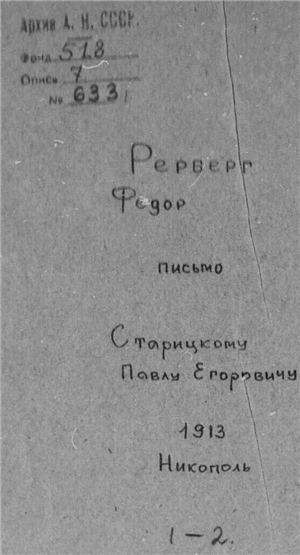 Архив А. Н. СССР.
Фонд 518
Опись 7
№ 633
Рерберг
Федор
письмо
Старицкому
Павлу Егоровичу
1913
Никополь
1-2.